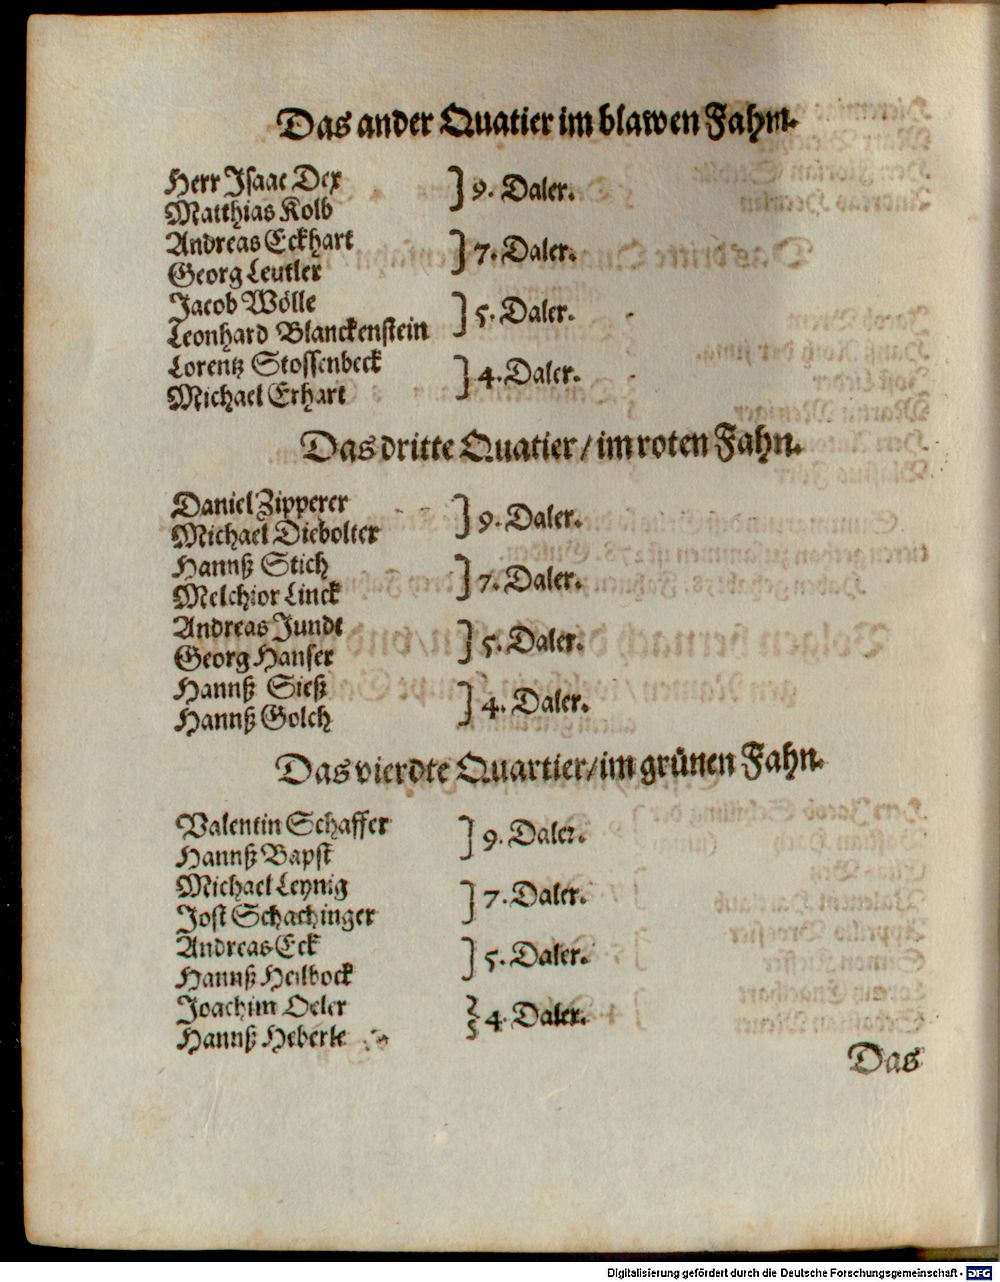 Das ander Quatier im blawen Fahn.
Herr Isaac Dex
Matthias Kolb
] 9. Daler.
Andreas Eckhart
Georg Leutler
] 7. Daler.
Jacob Wölle
Leonhard Blanckenstein
] 5. Daler.
Lorentz Stossenbeck
Michael Erhart
] 4. Daler.
Das dritte Quatier / im roten Fahn.
Daniel Zipperer
Michael Diebolter
] 9. Daler.
Hannß Stich
Melchior Linck
] 7. Daler.
Andreas Jundt
Georg Hanser
] 5. Daler.
Hannß Sieß
Hannß Golch
] 4. Daler.
Das vierdte Quartier / im grünen Fahn.
Valentin Schaffer
Hannß Bapst
] 9. Daler.
Michael Leynig
Jost Schachinger
] 7. Daler.
Andreas Eck
Hannß Heilbock
] 5. Daler.
Joachim Oeler
Hannß Heberle
} 4. Daler.
Das
Digitalisierung gefördert durch die Deutsche Forschungsgemeinschaft - DFG